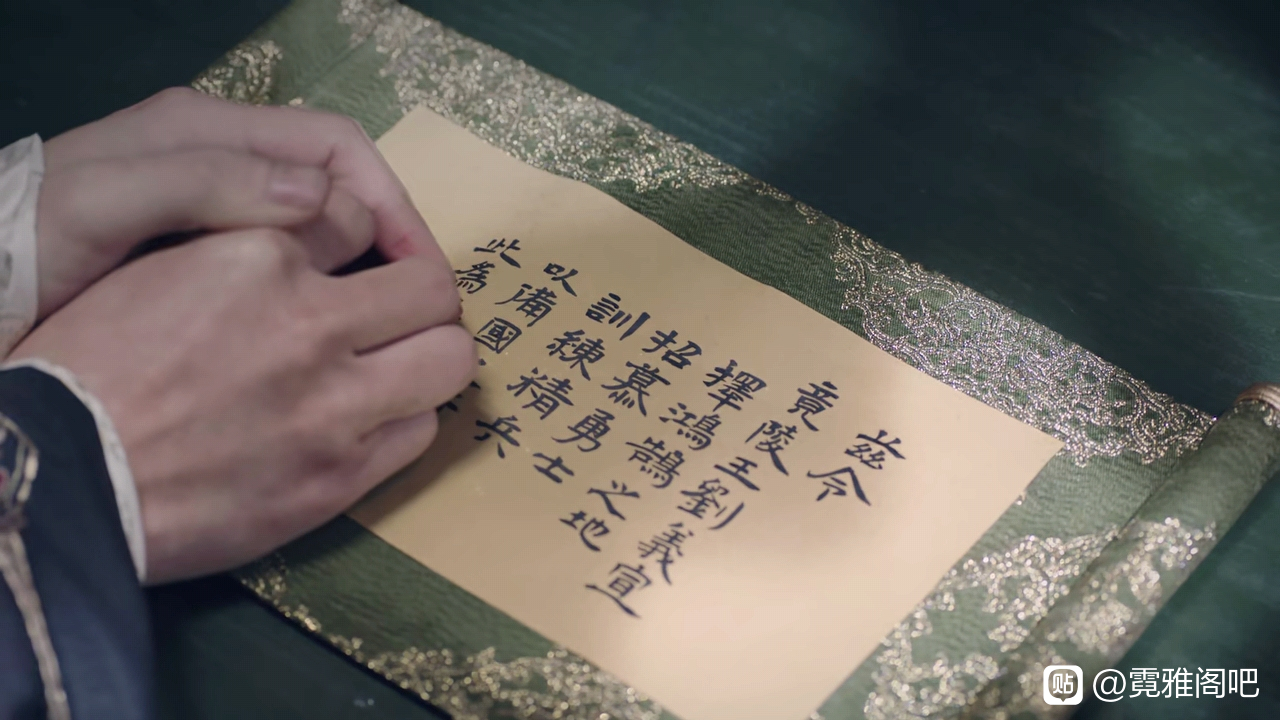 茲令
竟陵王劉義宣
擇鴻鵠之地
招慕勇士
訓練精兵
以備國
此為
@霓雅阁吧